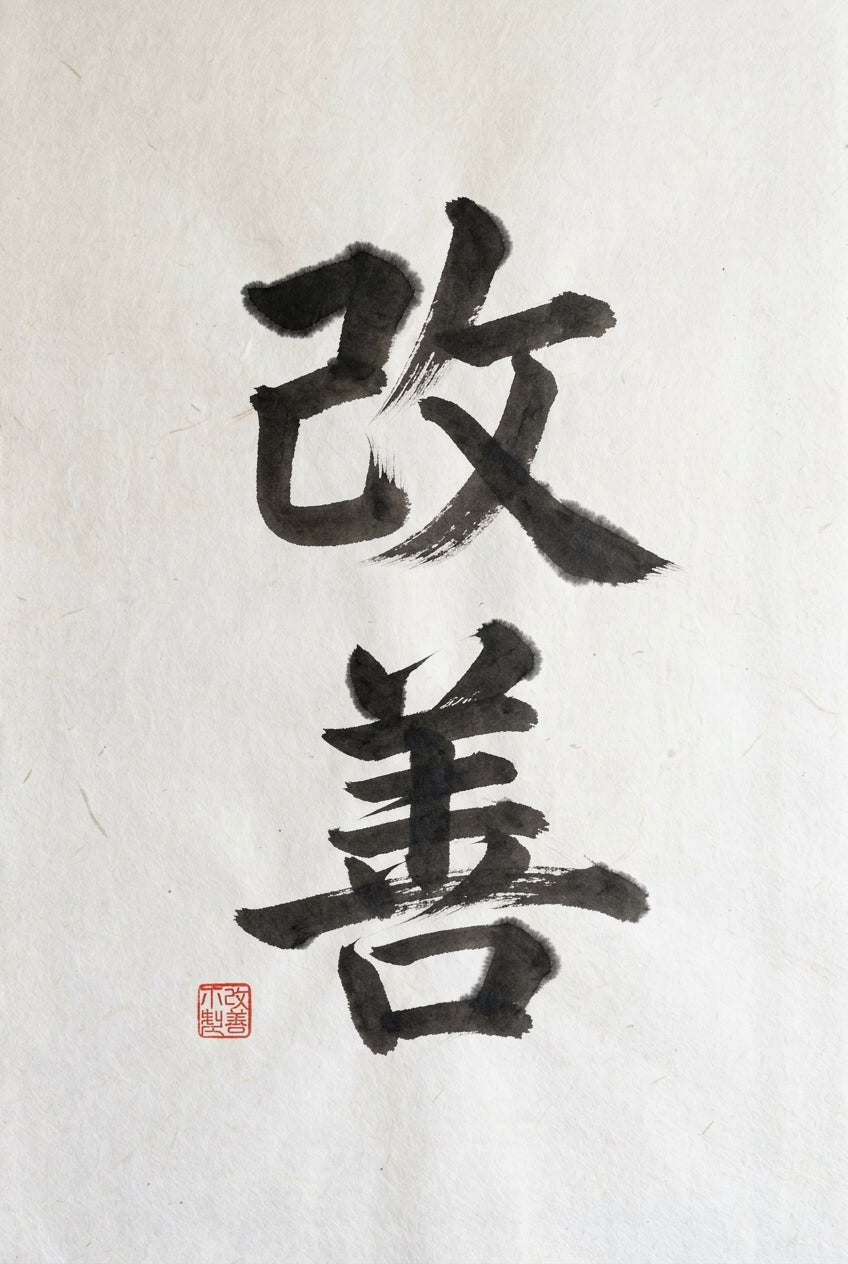 改
善
改善